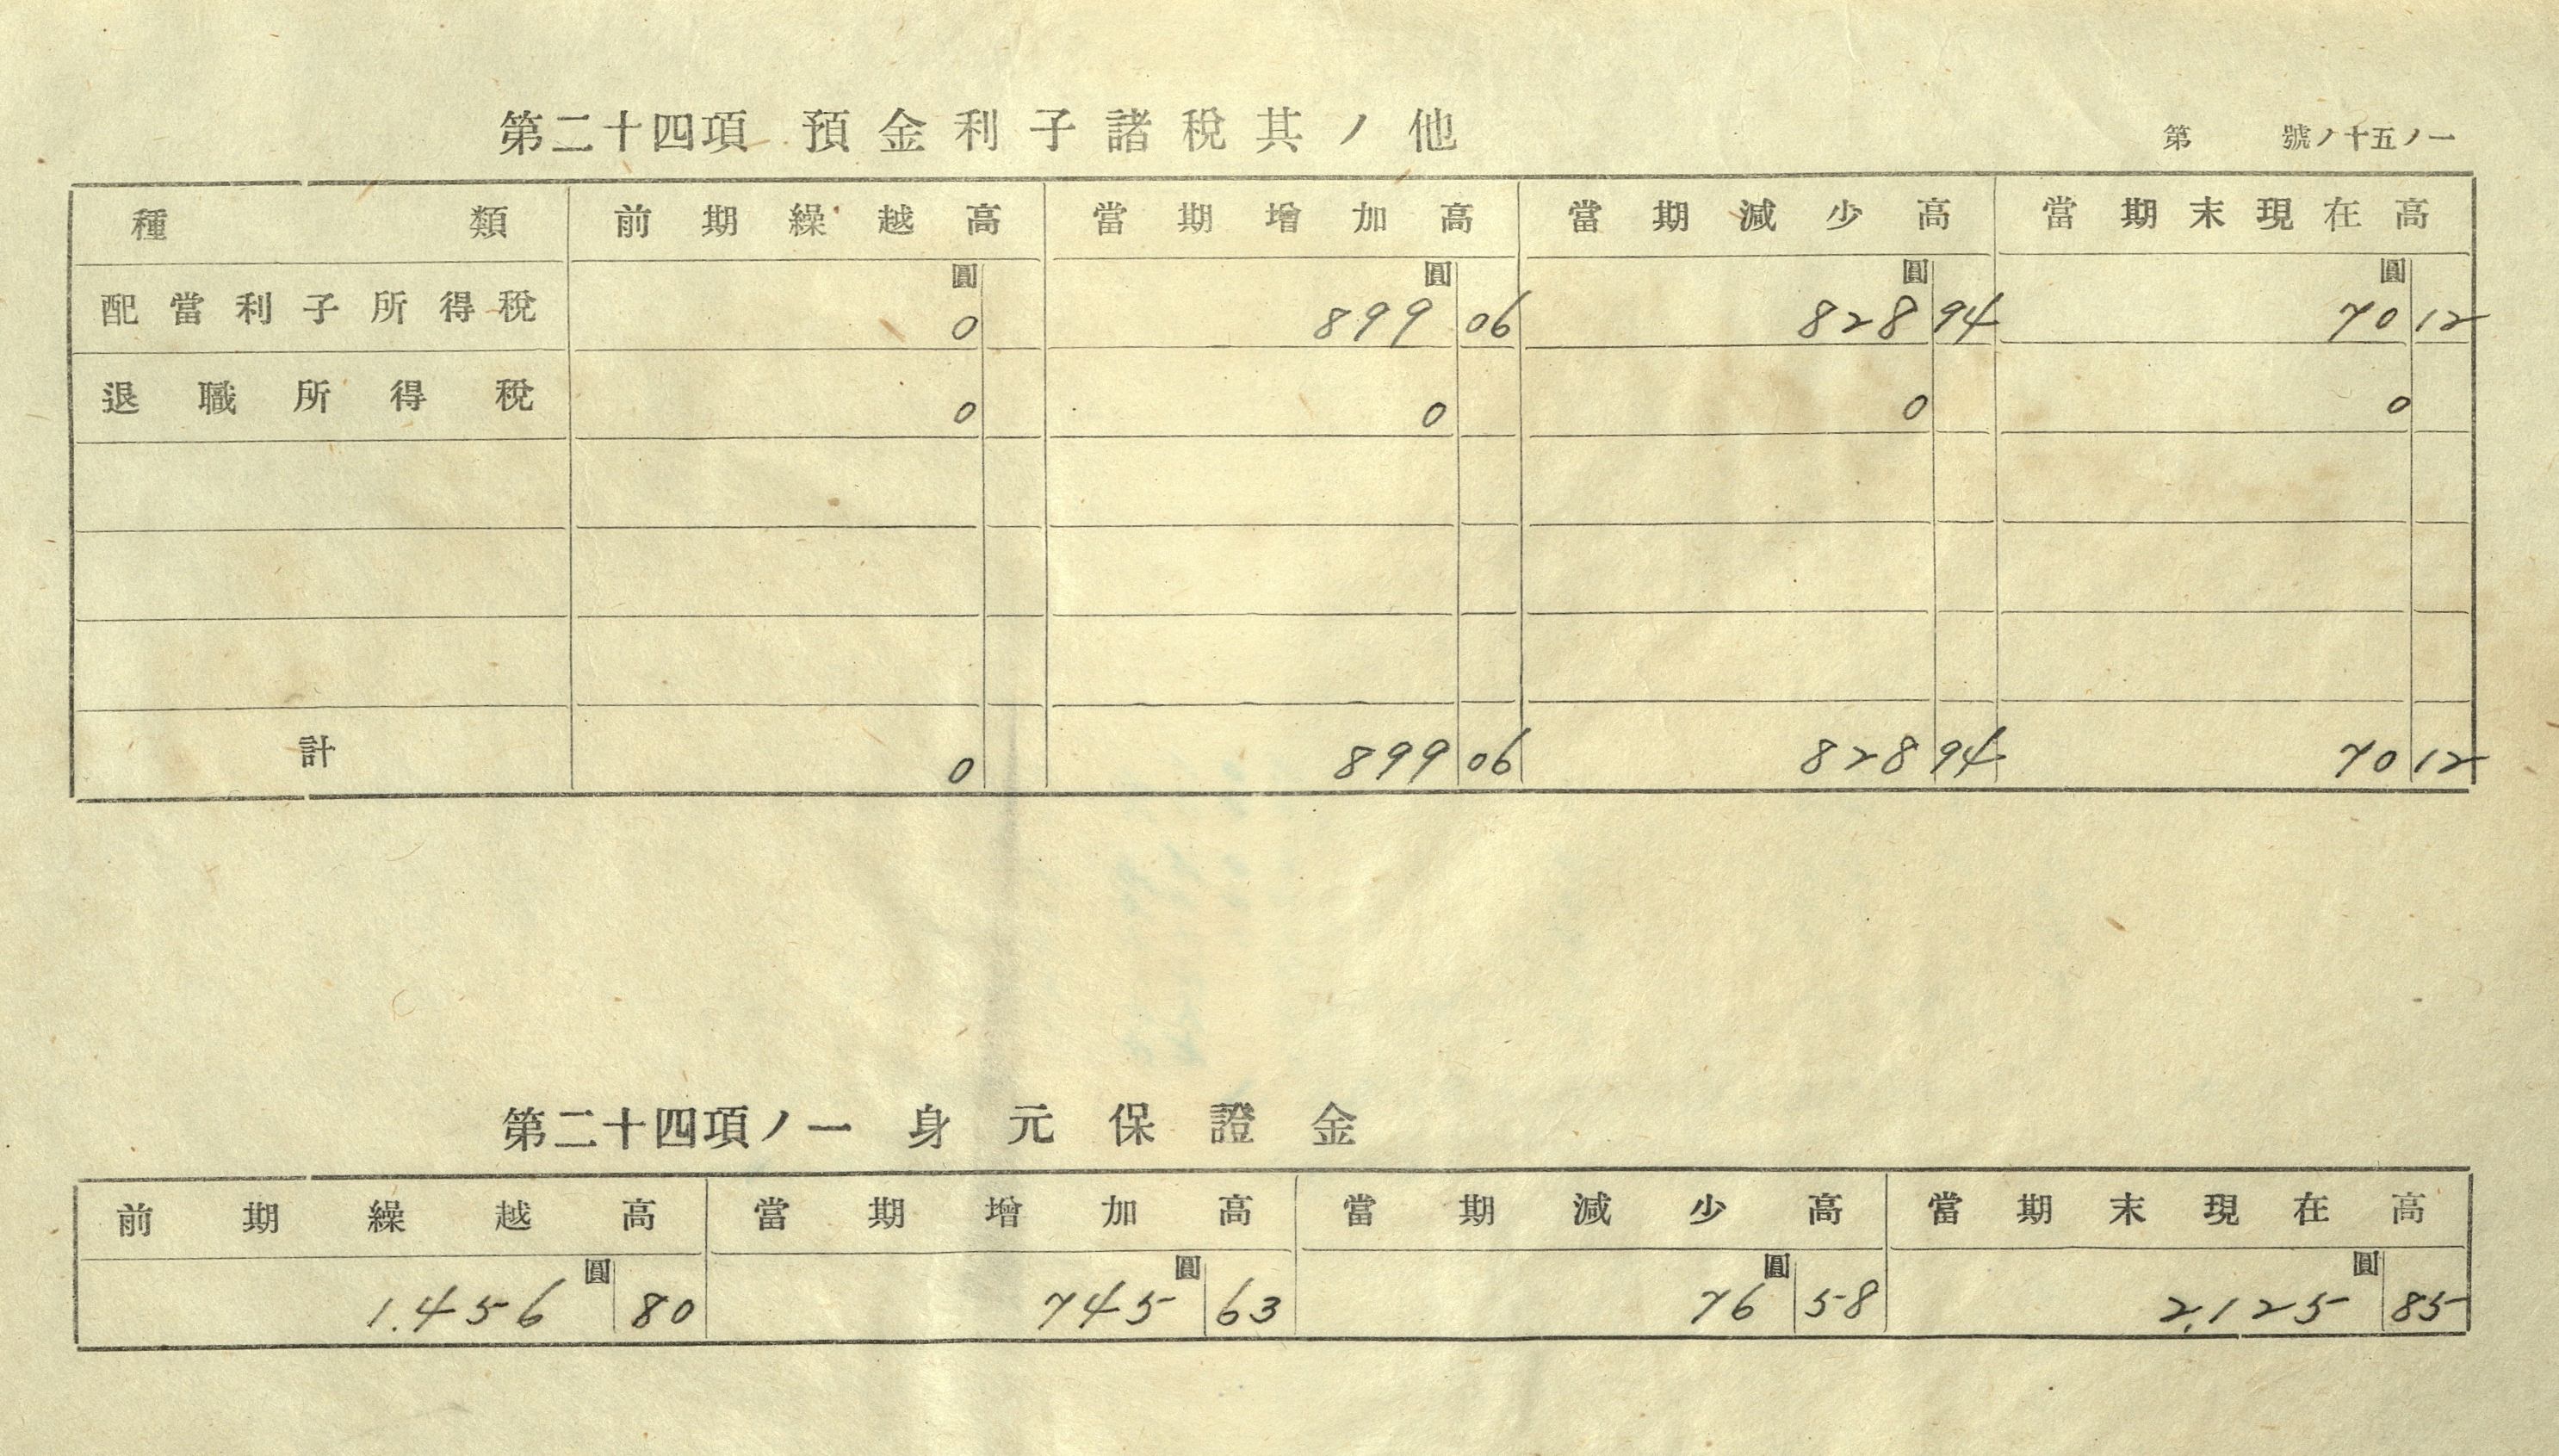 第二十四項 預金利子諸税其ノ他 第 號ノ十五ノ一
種類 前期繰越高 當期增加高 當期減少高 當期末現在高
圓 圓 圓 圓
配當利子所得税 0 899 06 828 94 70 12
退職所得税 0 0 0 0
計 0 899 06 828 94 70 12
第二十四項ノ一 身元保證金
前期繰越高 當期增加高 當期減少高 當期末現在高
圓 圓 圓 圓
1.456 80 745 63 76 58 2,125 85